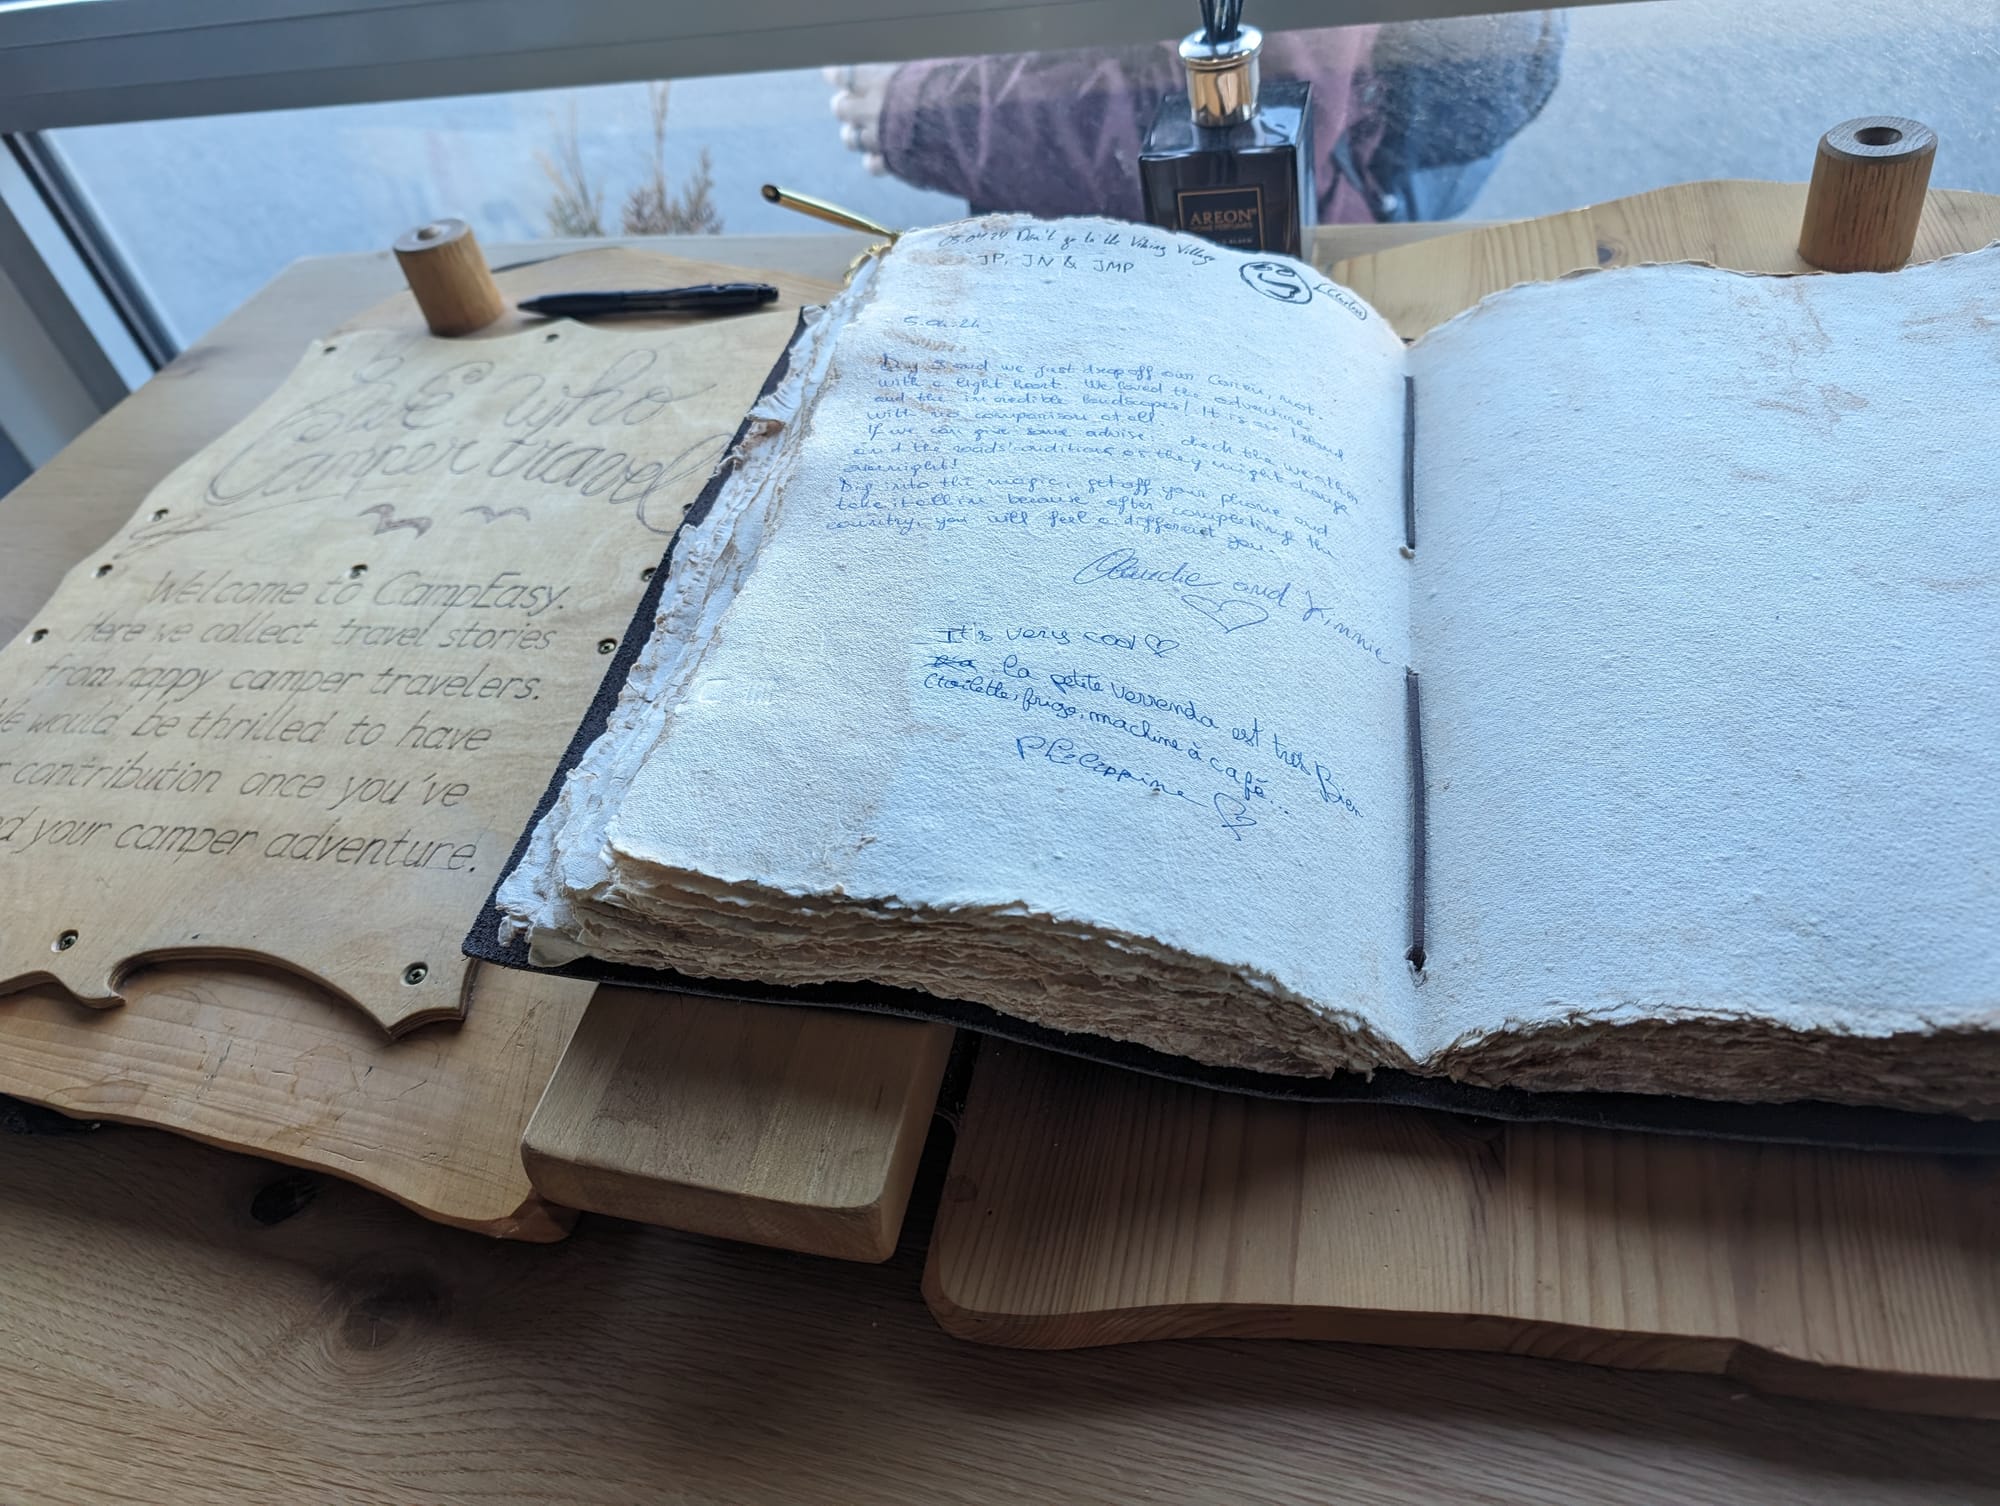 We who
Camper travel
Welcome to CampEasy.
Here we collect travel stories
from happy camper travelers.
We would be thrilled to have
contribution once you've
your camper adventure.
AREON
05.04.24 Don't go to the Viking Village
JP, JN & JMP
5.04.24
Day 5 and we just drop off our
with a light heart. We loved the adventures
and the incredible landscapes! It is an Island
with no comparison at all.
If we can give some advise: check the weather
and the roads' conditions as they might change
overnight!
Dig into the magic, get off your phone and
take it all in because after completing the
country, you will feel a different you.
Claudie and Jimmie
It's very cool ♡
la petite verrenda est très Bien
(toilette, frigo, machine à café...
Philippine